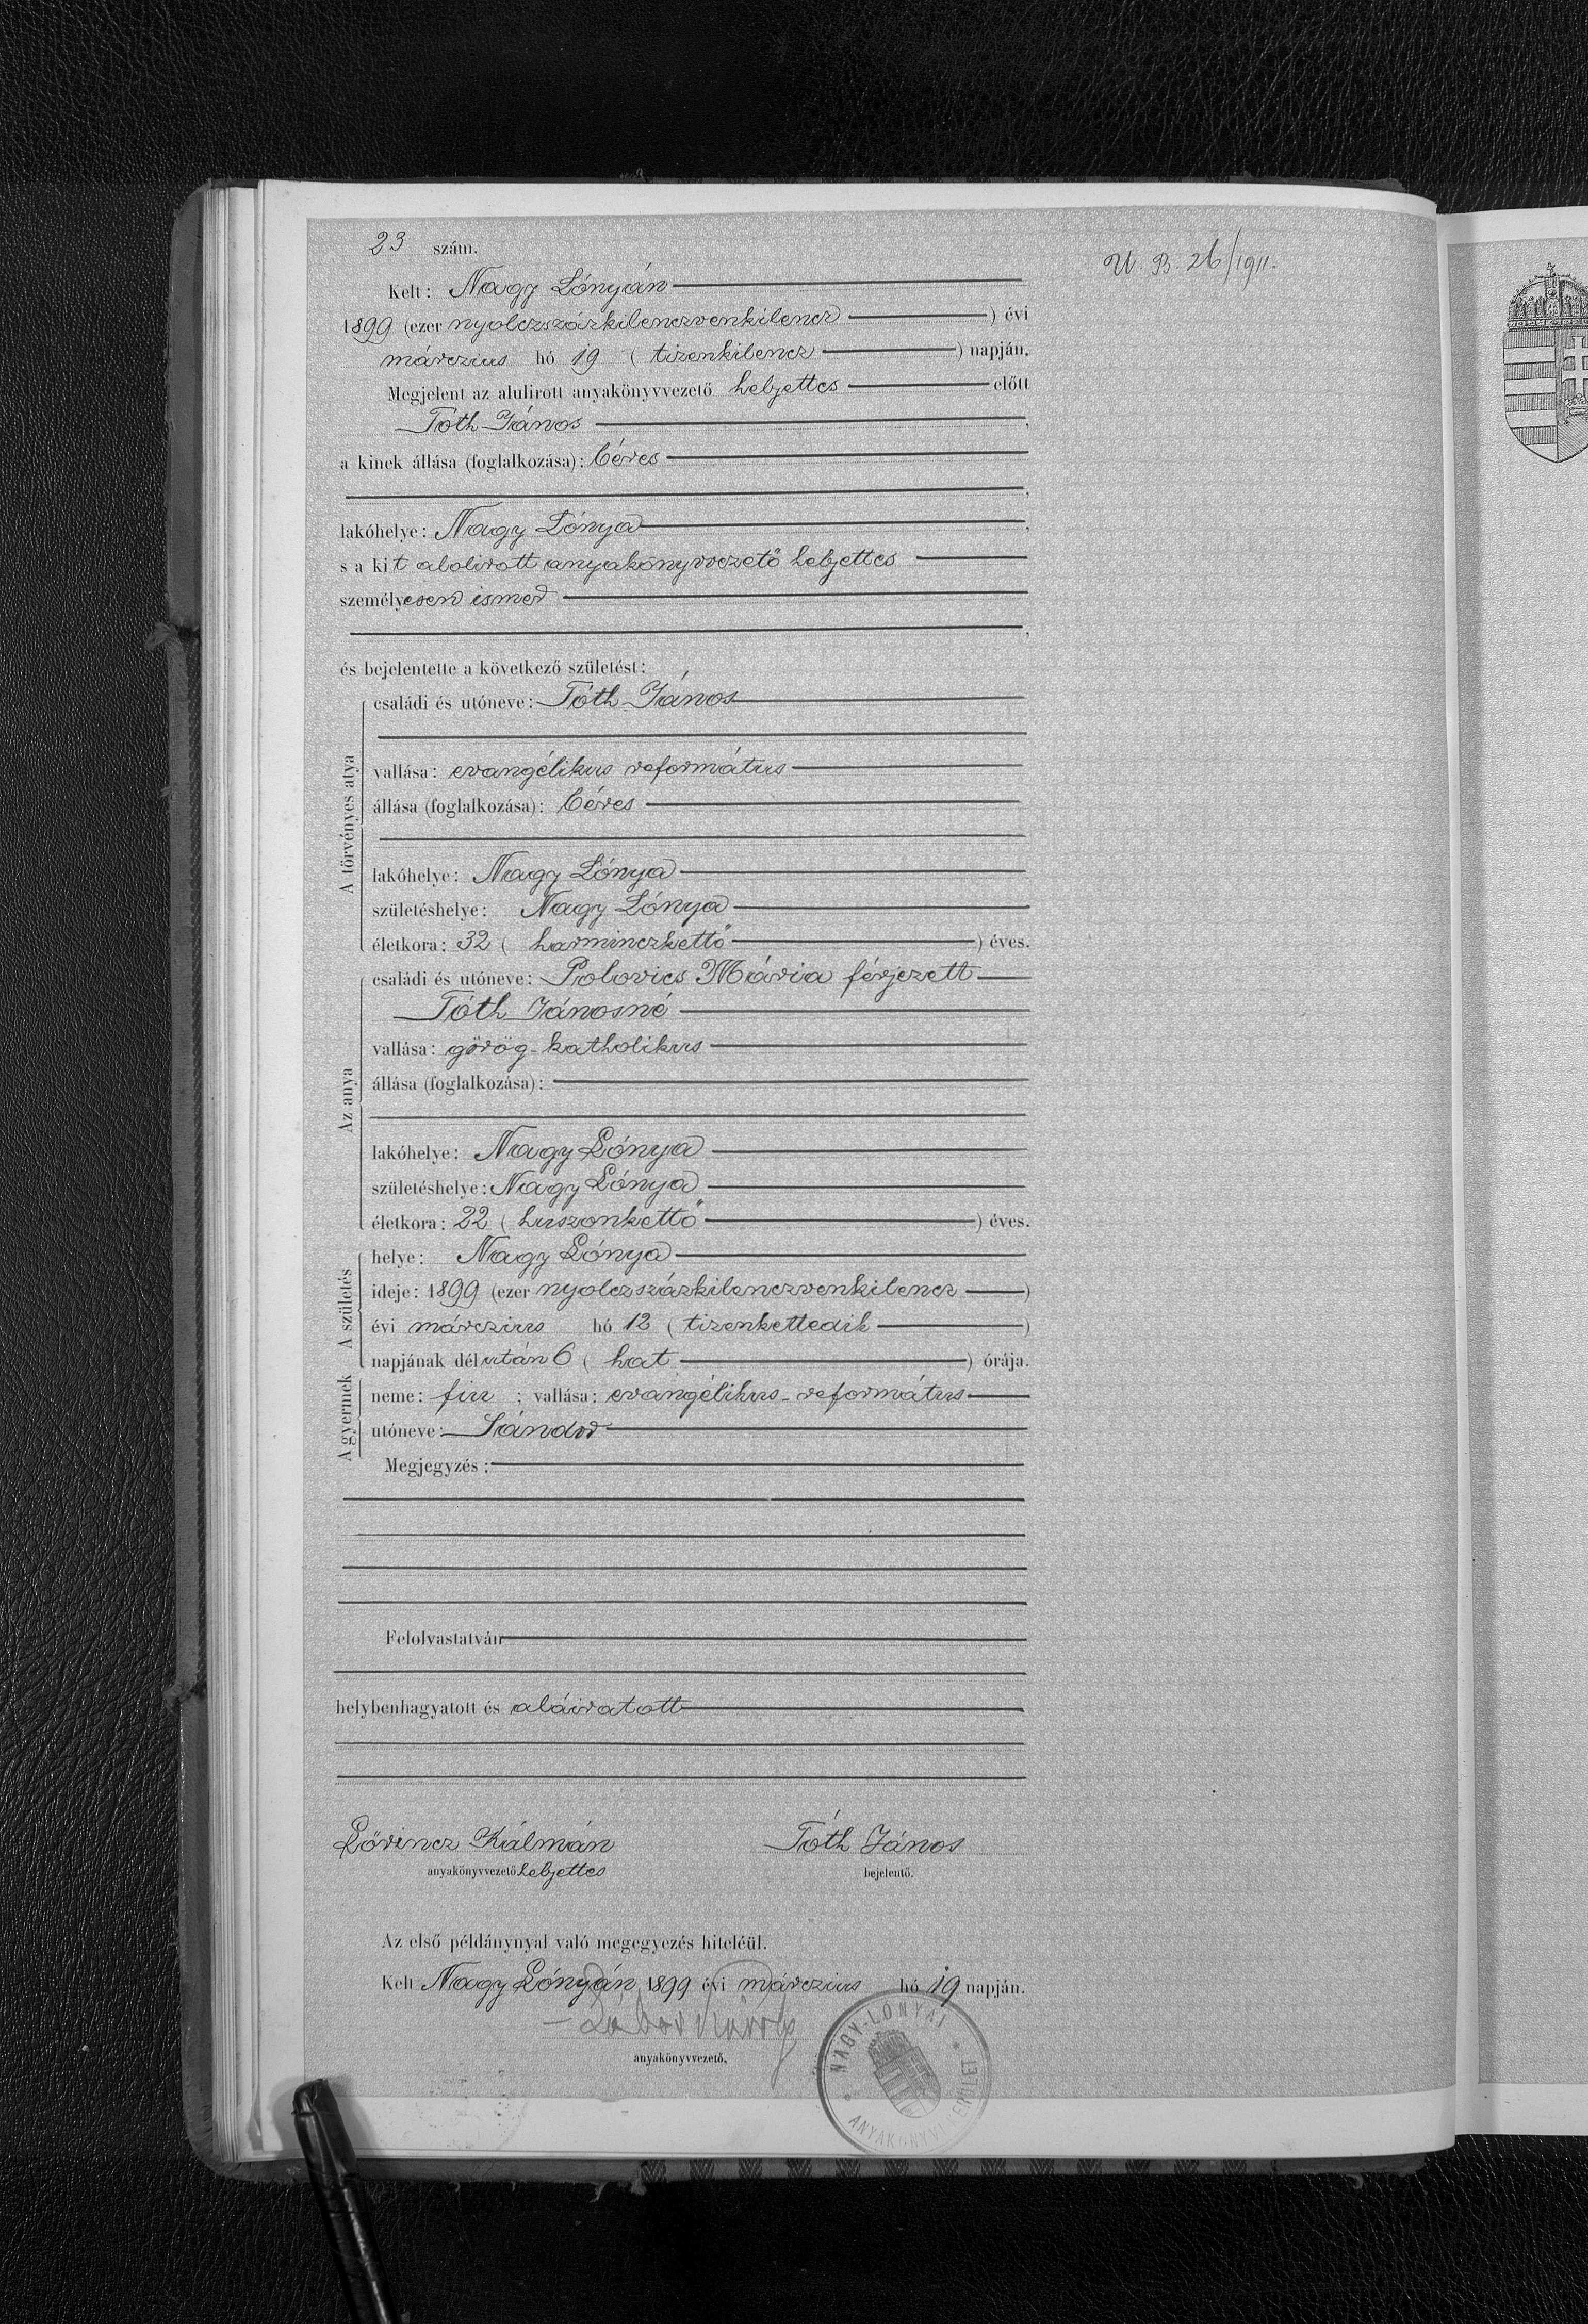 23 szám.
U. B. 26/1911.
Kelt: Nagy Lónyán
1899 (ezer nyolczszázkilenczvenkilencz) évi
márczius hó 19 (tizenkilencz) napján.
Megjelent az alulirott anyakönyvvezető helyettes előtt
Tóth János,
a kinek állása (foglalkozása): béres
lakóhelye: Nagy Lónya,
s a kit alolirott anyakönyvvezető helyettes
személyesen ismer,
és bejelentette a következő születést:
A törvényes atya
családi és utóneve: Tóth János
vallása: evangélikus református
állása (foglalkozása): béres
lakóhelye: Nagy Lónya
születéshelye: Nagy Lónya
életkora: 32 (harminczkettő) éves.
Az anya
családi és utóneve: Polovics Mária férjezett
Tóth Jánosné
vallása: görög-katholikus
állása (foglalkozása):
lakóhelye: Nagy Lónya
születéshelye: Nagy Lónya
életkora: 22 (huszonkettő) éves.
A születés
helye: Nagy Lónya
ideje: 1899 (ezer nyolczszázkilenczvenkilencz)
évi márczius hó 12 (tizenkettedik)
napjának délután 6 (hat) órája.
A gyermek
neme: fiu; vallása: evangélikus-református
utóneve: Sándor
Megjegyzés:
Felolvastatván
helybenhagyatott és aláiratott
Lőrincz Kálmán
Tóth János
anyakönyvvezető helyettes
bejelentő.
Az első példánynyal való megegyezés hiteléül.
Kelt Nagy Lónyán 1899 évi márczius hó 19 napján.
anyakönyvvezető.
NAGY-LÓNYAI
ANYAKÖNYVI KERÜLET